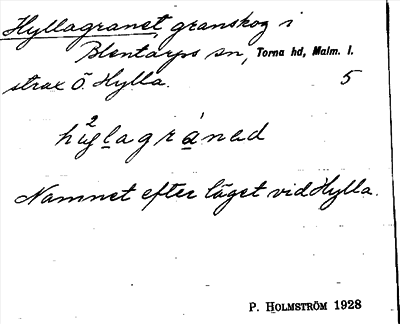 Hyllagranet granskog i
Blentarps sn, Torna hd, Malm. l.
strax Ö. Hylla. 5
Namnet efter läget vid Hylla.
P. HOLMSTRÖM 1928